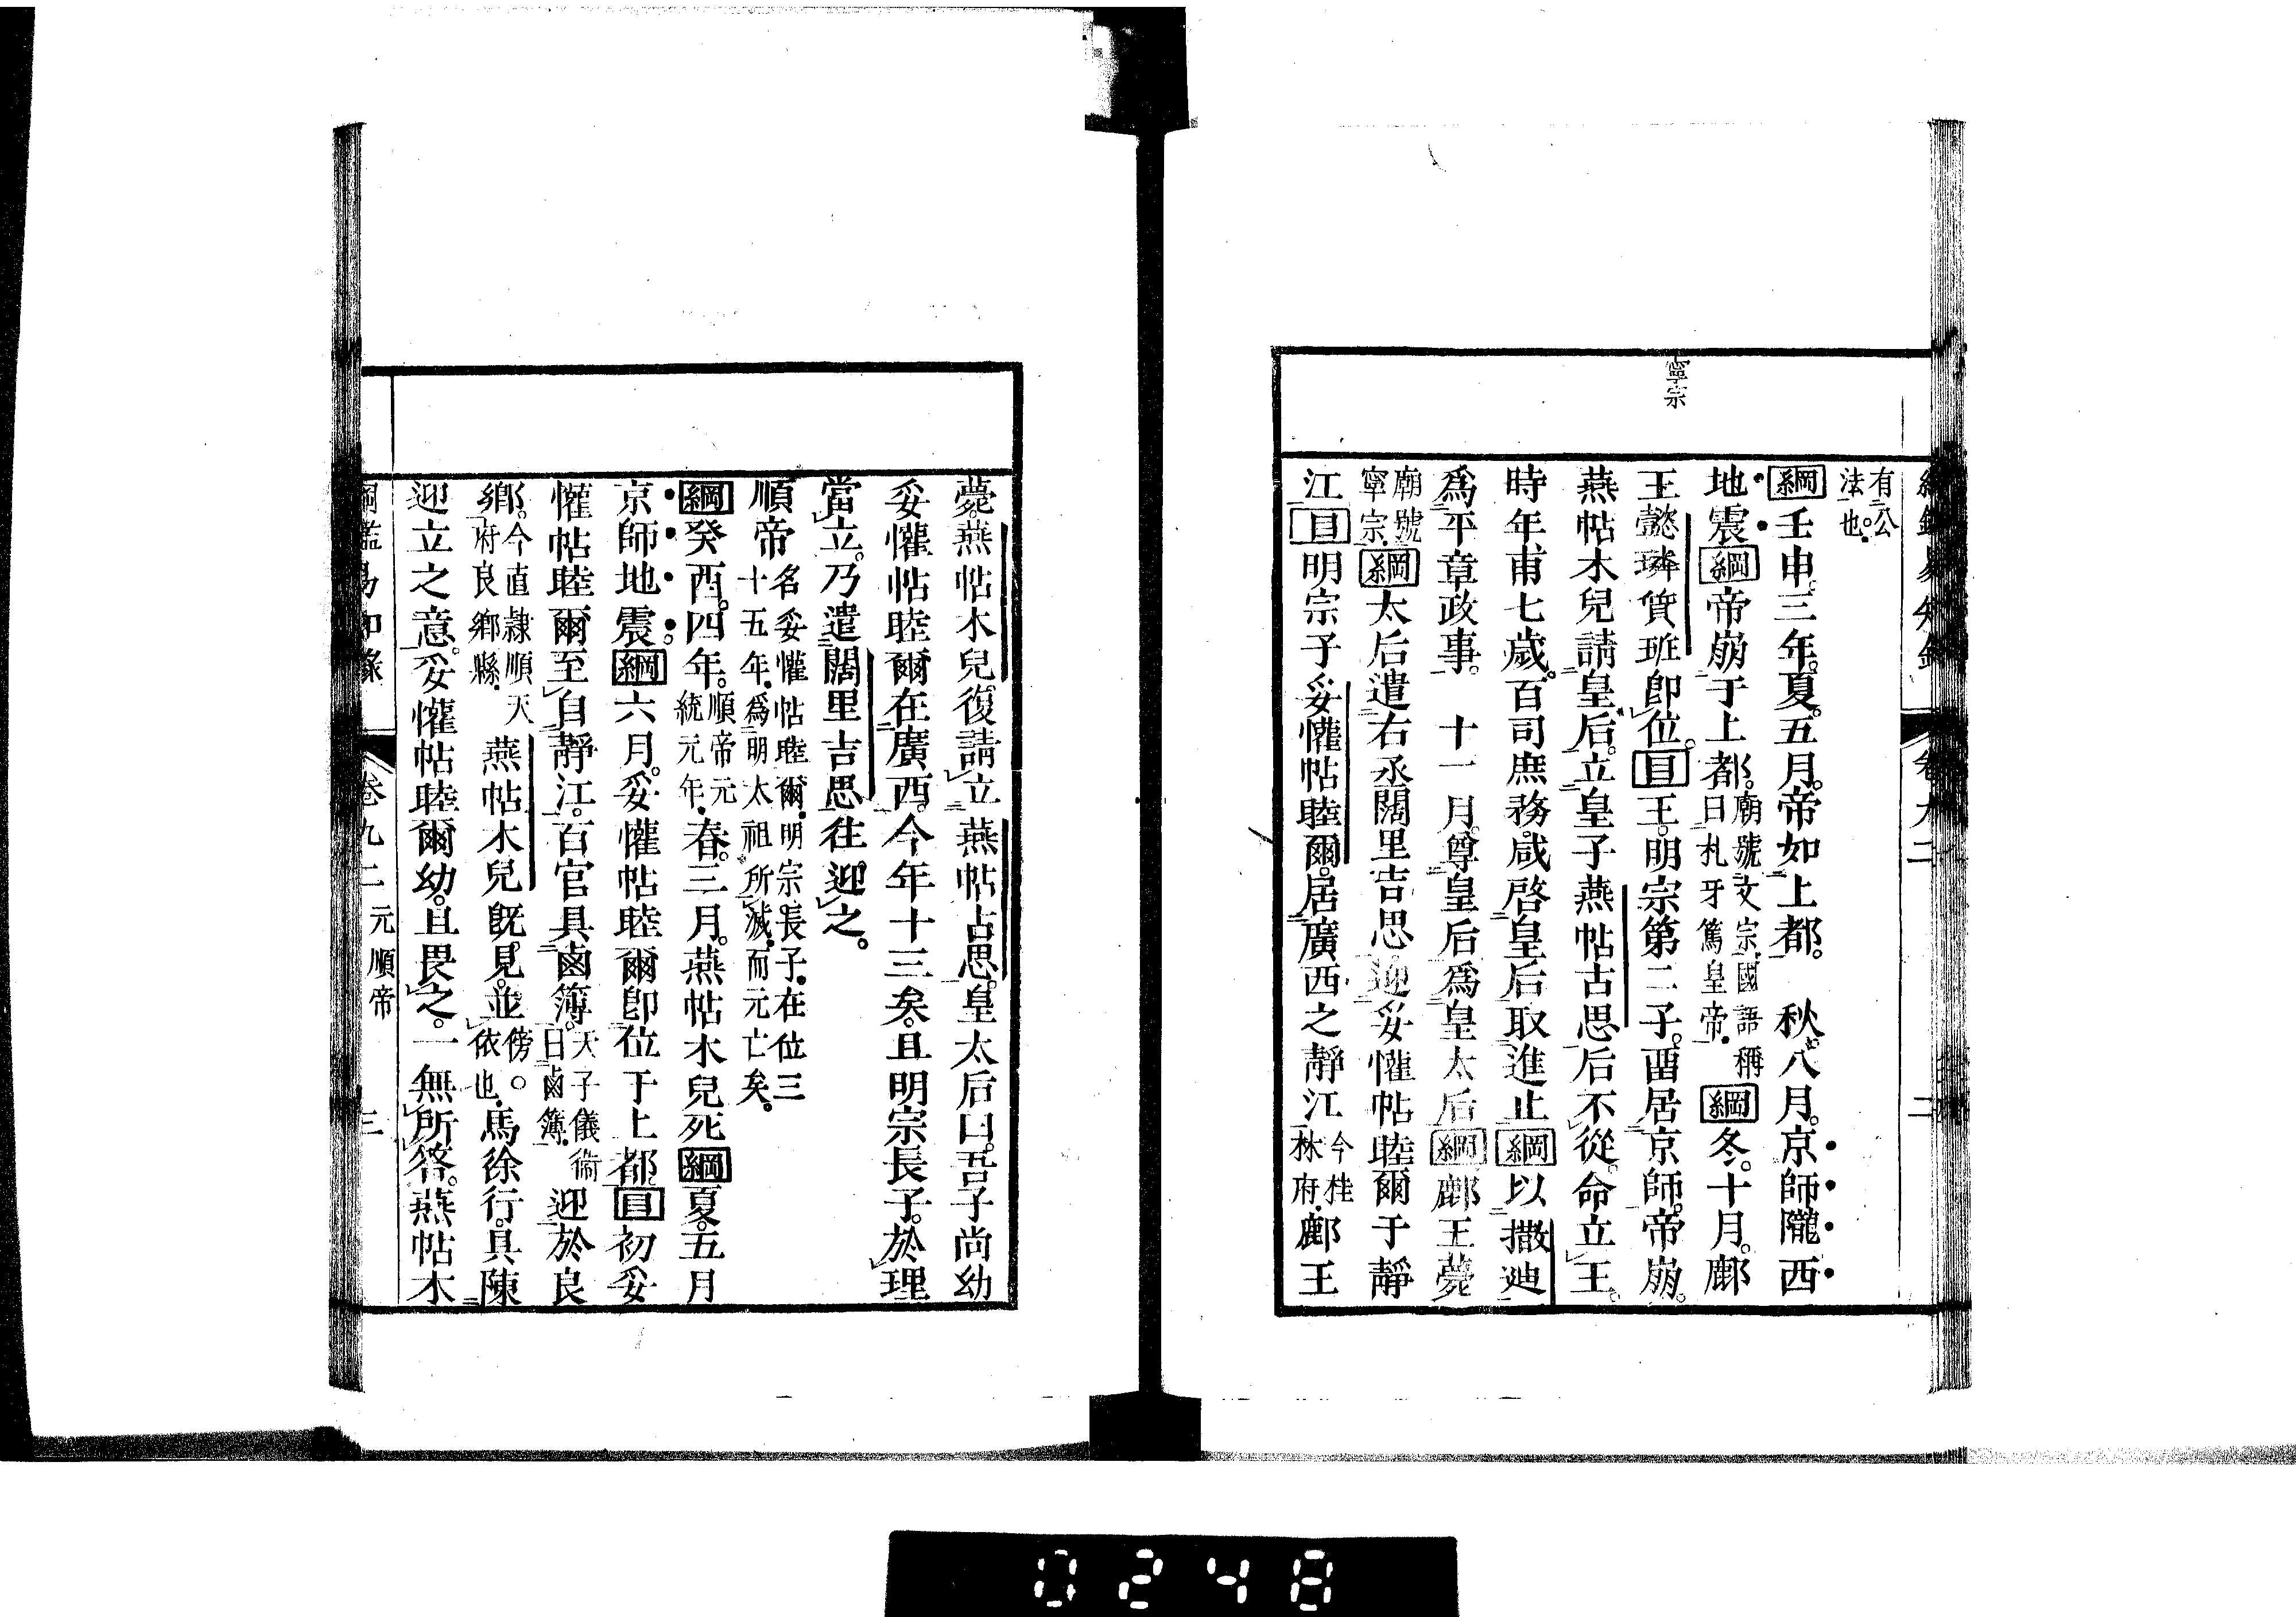 寧宗
有公
法也。
綱壬申。三年。夏。五月。帝如上都。　秋。八月。京師隴西
地震綱帝崩于上都。廟號文宗。國語稱曰札牙篤皇帝。綱冬。十月。鄜
王懿璘質班即位。目王。明宗第二子。畱居京師。帝崩。
燕帖木兒請皇后。立皇子燕帖古思。后不從。命立王。
時年甫七歲。百司庶務。咸啓皇后取進止綱以撒迪
爲平章政事。　十一月。尊皇后爲皇太后綱鄜王薨
廟號寧宗。綱太后遣右丞闊里吉思迎妥懽帖睦爾于靜
江目明宗子妥懽帖睦爾。居廣西之靜江今桂林府。鄜王
薨。燕帖木兒復請立燕帖古思。皇太后曰。吾子尚幼
妥懽帖睦爾在廣西。今年十三矣。且明宗長子。於理
當立。乃遣闊里吉思往迎之。
順帝名妥懽帖睦爾。明宗長子。在位三十五年。爲明太祖所滅。而元亡矣。
綱癸酉。四年。順帝元統元年。春。三月。燕帖木兒死綱夏。五月
京師地震。綱六月。妥懽帖睦爾即位于上都目初妥
懽帖睦爾至自靜江。百官具鹵簿。天子儀衞曰鹵簿。迎於良
鄉。今直隷順天府良鄉縣。燕帖木兒既見。並傍。依也。馬徐行。具陳
迎立之意。妥懽帖睦爾幼。且畏之。一無所答。燕帖木
卷九二　元順帝　三
0248